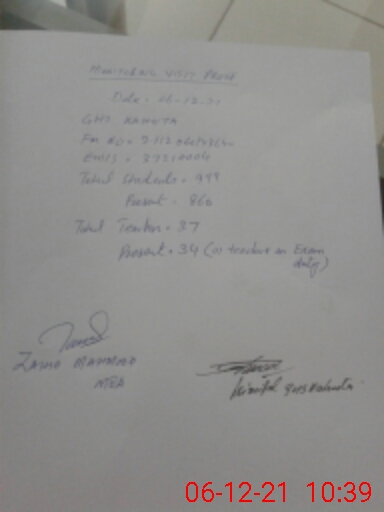 MONITORING VISIT PROOF
Date = 06-12-21
GHS KAHUTA
EMIS =
Total Students = 999
Present = 860
Total Teacher = 37
Present = 34 (01 teacher on Exam
duty)
MAHMOOD
MEA
Principal GHS Kahuta
06-12-21 10:39